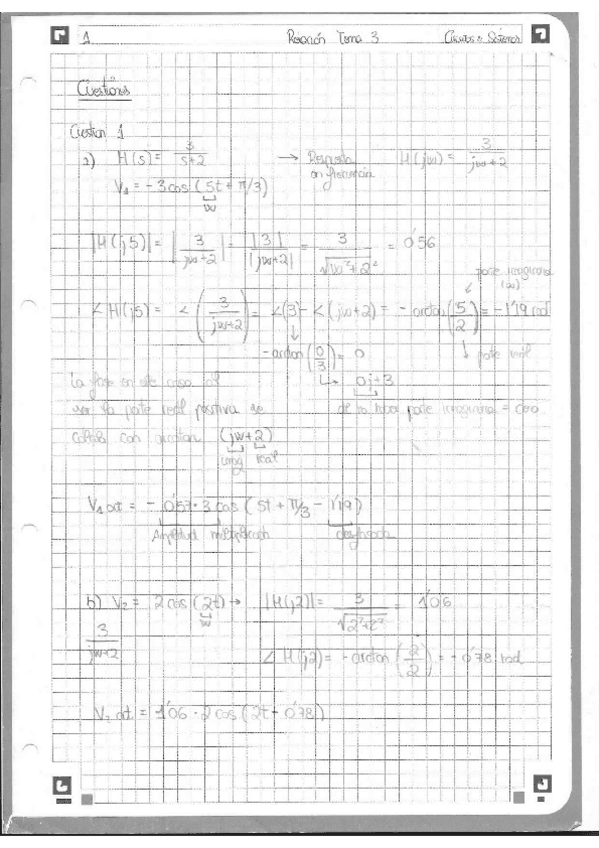 1 Relación Tema 3 Circuitos y Sistemas
Cuestiones
Cuestion 1
a) H(s) = 3/(s+2) → Respuesta en frecuencia H(jw) = 3/(jw+2)
V₁ = -3cos(5t + π/3)
w
|H(j5)| = |3/(jw+2)| = |3|/|jw+2| = 3/√(w²+2²) = 0'56
parte imaginaria (w)
∠H(j5) = ∠(3/(jw+2)) = ∠(3) - ∠(jw+2) = -arctan(5/2) = -1'19 rad
-arctan(0/3) = 0 parte real
0j+3
La fase en este caso al
ser la parte real positiva se de no haber parte imaginaria = cero
calcula con arcotan (jw+2)
imag real
V₁ out = -0'57·3 cos(5t + π/3 - 1'19)
Amplitud multiplicada desfasada
b) V₂ = 2cos(2t) → |H(j2)| = 3/√(2²+2²) = 1'06
w
3/(jw+2)
∠H(j2) = -arctan(2/2) = -0'78 rad
V₂ out = 1'06 · 2 cos(2t - 0'78)